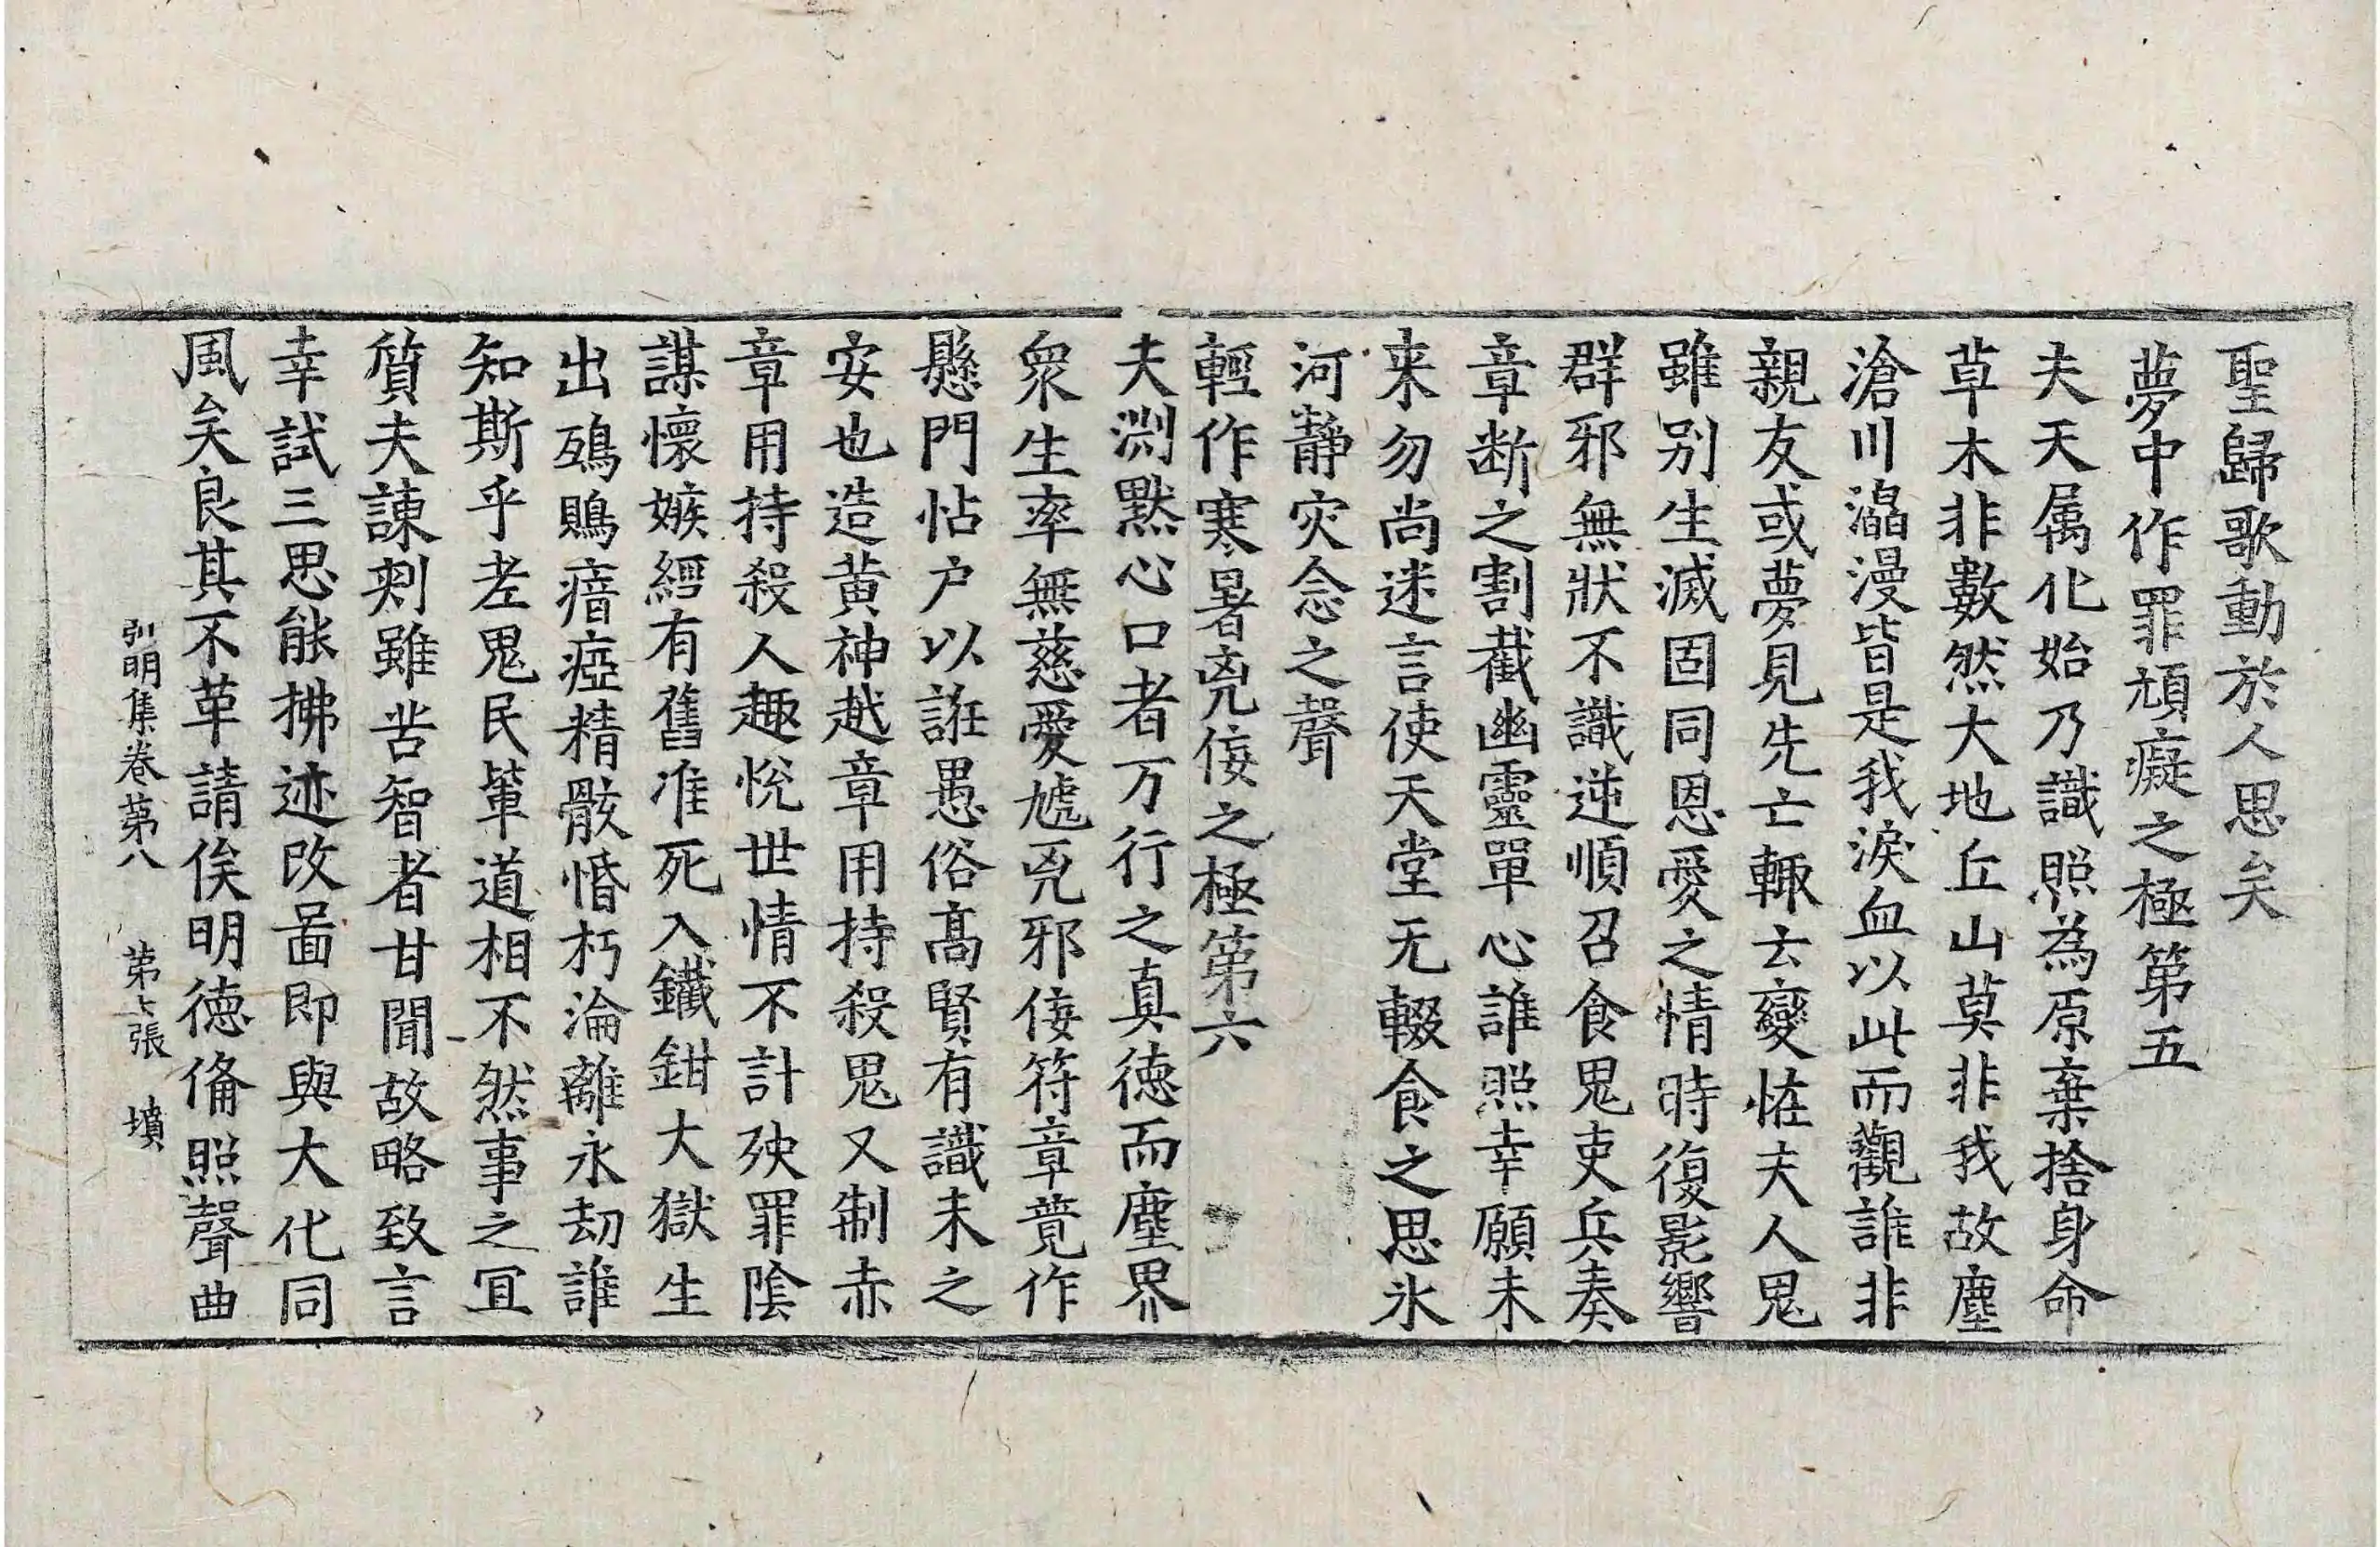 聖歸歌動於人思矣
夢中作罪頑癡之極第五
夫天属化始乃識照為原棄捨身命
草木非數然大地丘山莫非我故塵
滄川灟漫皆是我淚血以此而觀誰非
親友或夢見先亡輙云變恠夫人鬼
雖别生滅固同恩愛之情時復影響
群邪無狀不識逆順召食鬼吏兵奏
章断之割截幽靈單心誰照幸願未
来勿尚迷言使天堂无輟食之思氷
河静灾念之聲
輕作寒暑兇佞之極第六
夫淵黙心口者万行之真德而塵界
衆生率無慈愛虓兇邪佞符章竟作
懸門帖户以誑愚俗髙賢有識未之
安也造黄神越章用持殺鬼又制赤
章用持殺人趣悅世情不計殃罪陰
謀懷嫉經有舊准死入鐵鉗大獄生
出鵄鴟瘖瘂精骸惛朽淪離永劫誰
知斯乎老鬼民輩道相不然事之冝
質夫諫刾雖苦智者甘聞故略致言
幸試三思能拂迹改啚即與大化同
風矣良其不革請俟明德俻照聲曲
弘明集卷第八 第七張 墳